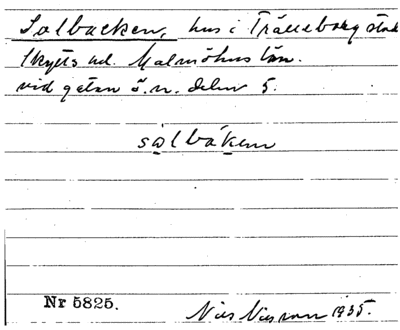 Solbacken, hus i Trälleborg stad
Skytts hd. Malmöhus län.
vid gatan ö. n. delen 5.
solbaken
Nr 5825.
Nils Nilsson 1935.